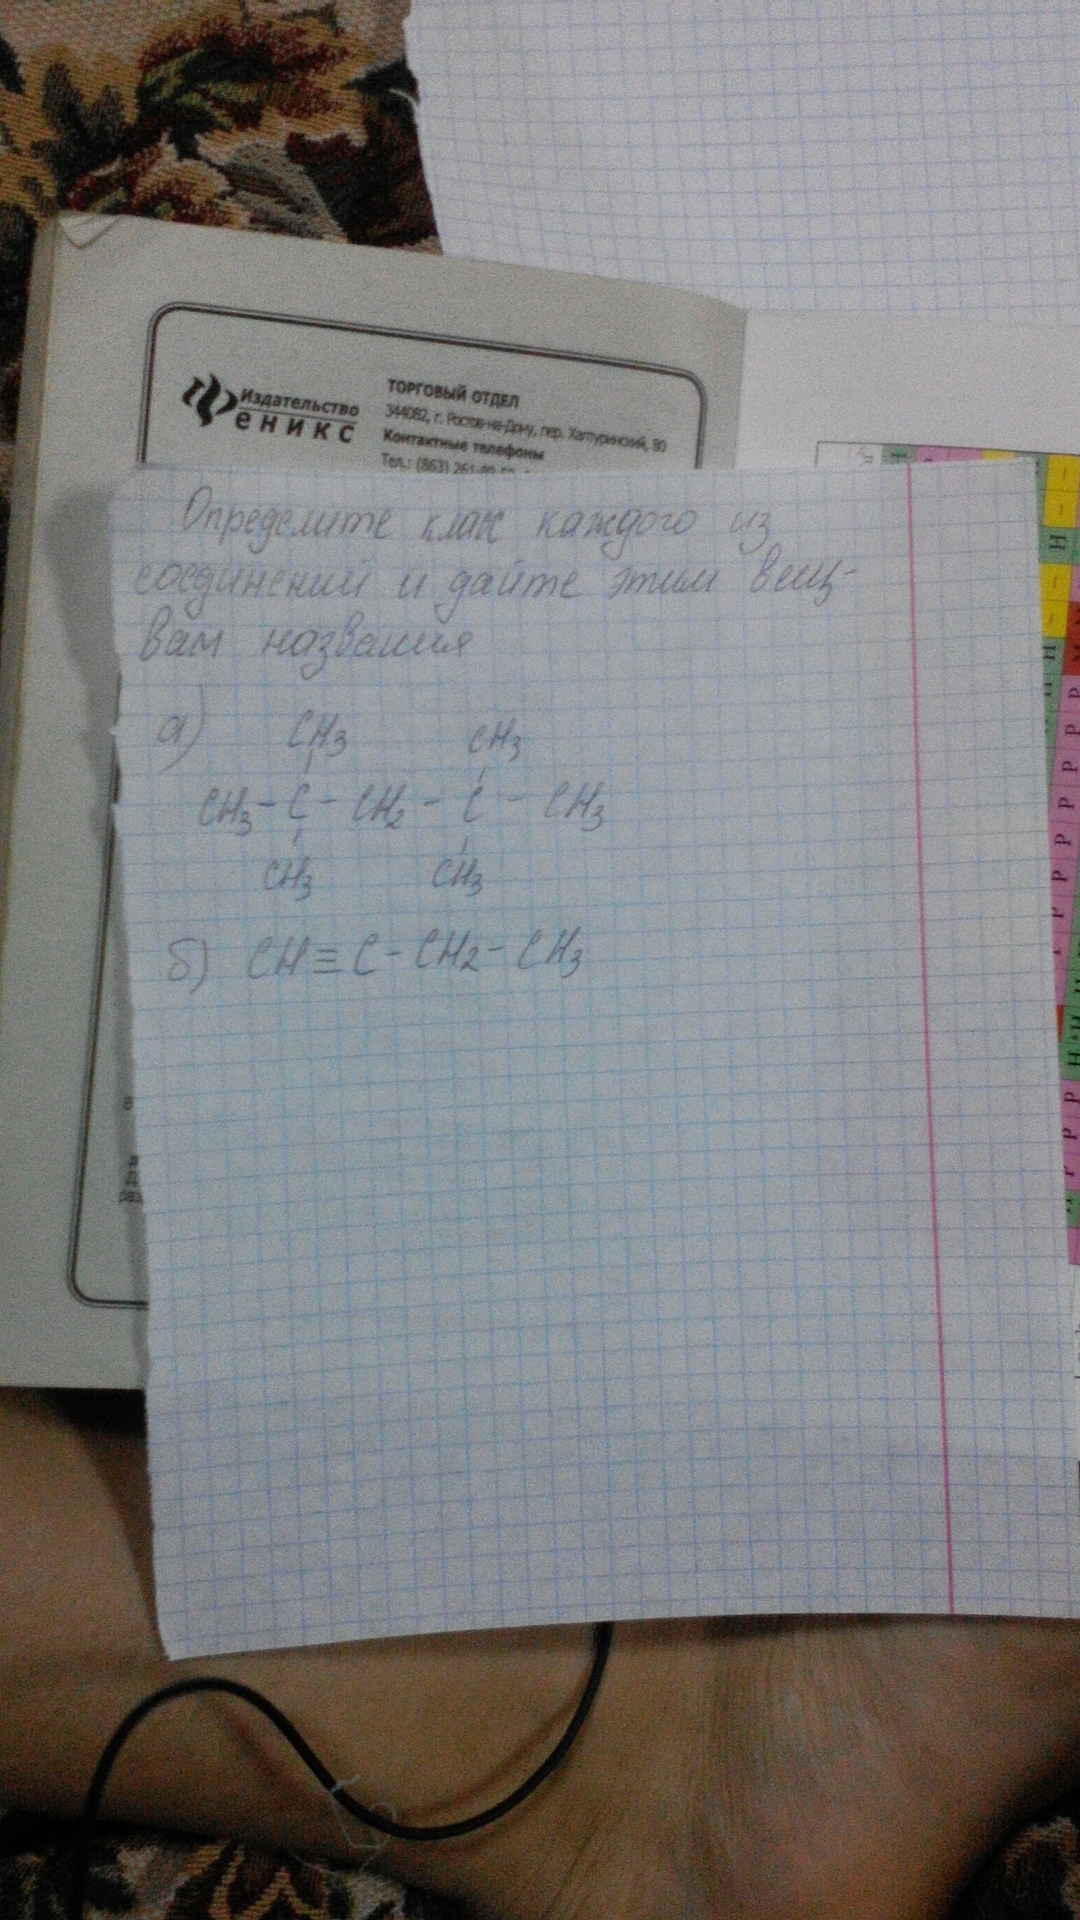 Издательство
еникс
ТОРГОВЫЙ ОТДЕЛ
344082, г. Ростов-на-Дону, пер. Халтуринский, 80
Контактные телефоны
Тел.: (863) 261-89-59
Определите клас каждого из
соединений и дайте этим вещ-
вам названия
а) CH₃ CH₃
CH₃ - C - CH₂ - C - CH₃
CH₃ CH₃
б) CH ≡ C - CH₂ - CH₃